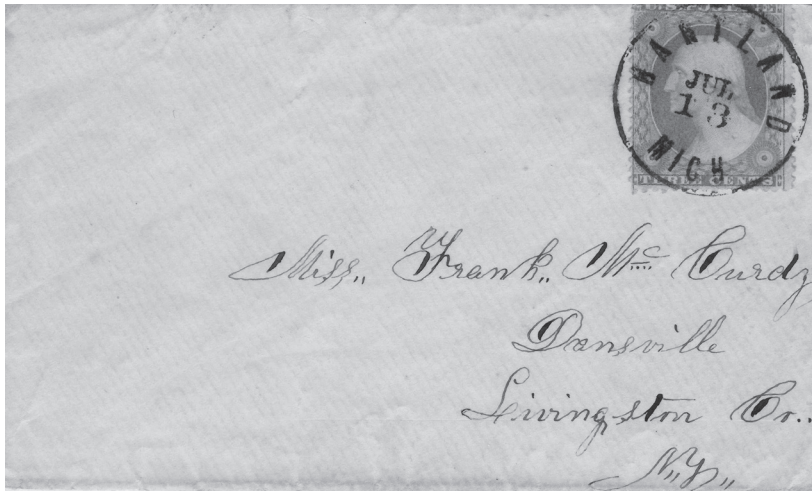 HARTLAND
JUL
13
MICH
THREE CENTS
Miss,, Frank,, Mc Curdy
Dansville
Livingston Co..
N.Y.,,